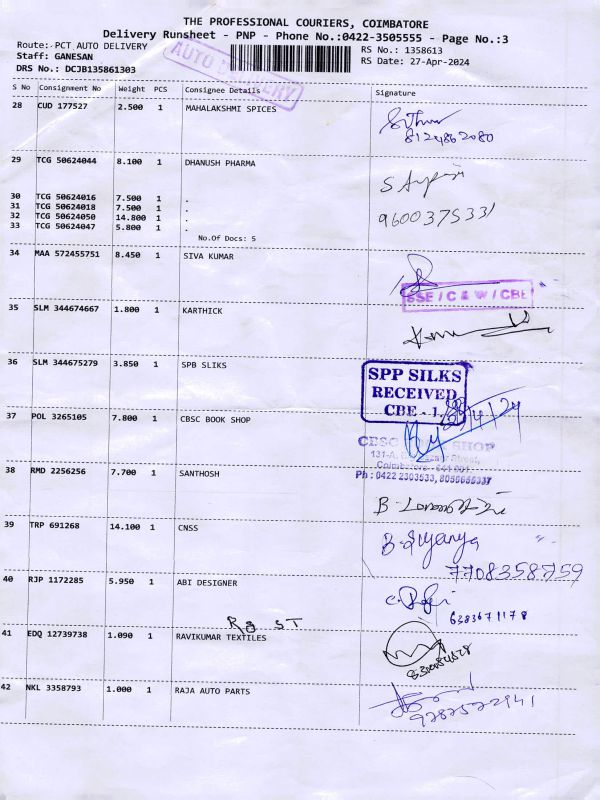 THE PROFESSIONAL COURIERS, COIMBATORE
Delivery Runsheet - PNP - Phone No.:0422-3505555 - Page No.:3
Route: PCT AUTO DELIVERY
AUTO DELIVERY
RS No.: 1358613
Staff: GANESAN
RS Date: 27-Apr-2024
DRS No.: DCJB135861303
S No Consignment No Weight PCS Consignee Details Signature
28 CUD 177527 2.500 1 MAHALAKSHMI SPICES
8124862080
29 TCG 50624044 8.100 1 DHANUSH PHARMA
30 TCG 50624016 7.500 1 .
31 TCG 50624018 7.500 1 .
32 TCG 50624050 14.800 1 .
33 TCG 50624047 5.800 1 .
9600375331
No.Of Docs: 5
34 MAA 572455751 8.450 1 SIVA KUMAR
SSE / C & W / CBE
35 SLM 344674667 1.800 1 KARTHICK
36 SLM 344675279 3.850 1 SPB SLIKS
SPP SILKS
RECEIVED
CBE - 1.
37 POL 3265105 7.800 1 CBSC BOOK SHOP
CBSC BOOK SHOP
Coimbatore - 641 001.
Ph : 0422 2303533, 8050655337
38 RMD 2256256 7.700 1 SANTHOSH
39 TRP 691268 14.100 1 CNSS
7708358759
40 RJP 1172285 5.950 1 ABI DESIGNER
6383671178
Rg ST
41 EDQ 12739738 1.090 1 RAVIKUMAR TEXTILES
42 NKL 3358793 1.000 1 RAJA AUTO PARTS
9787522941